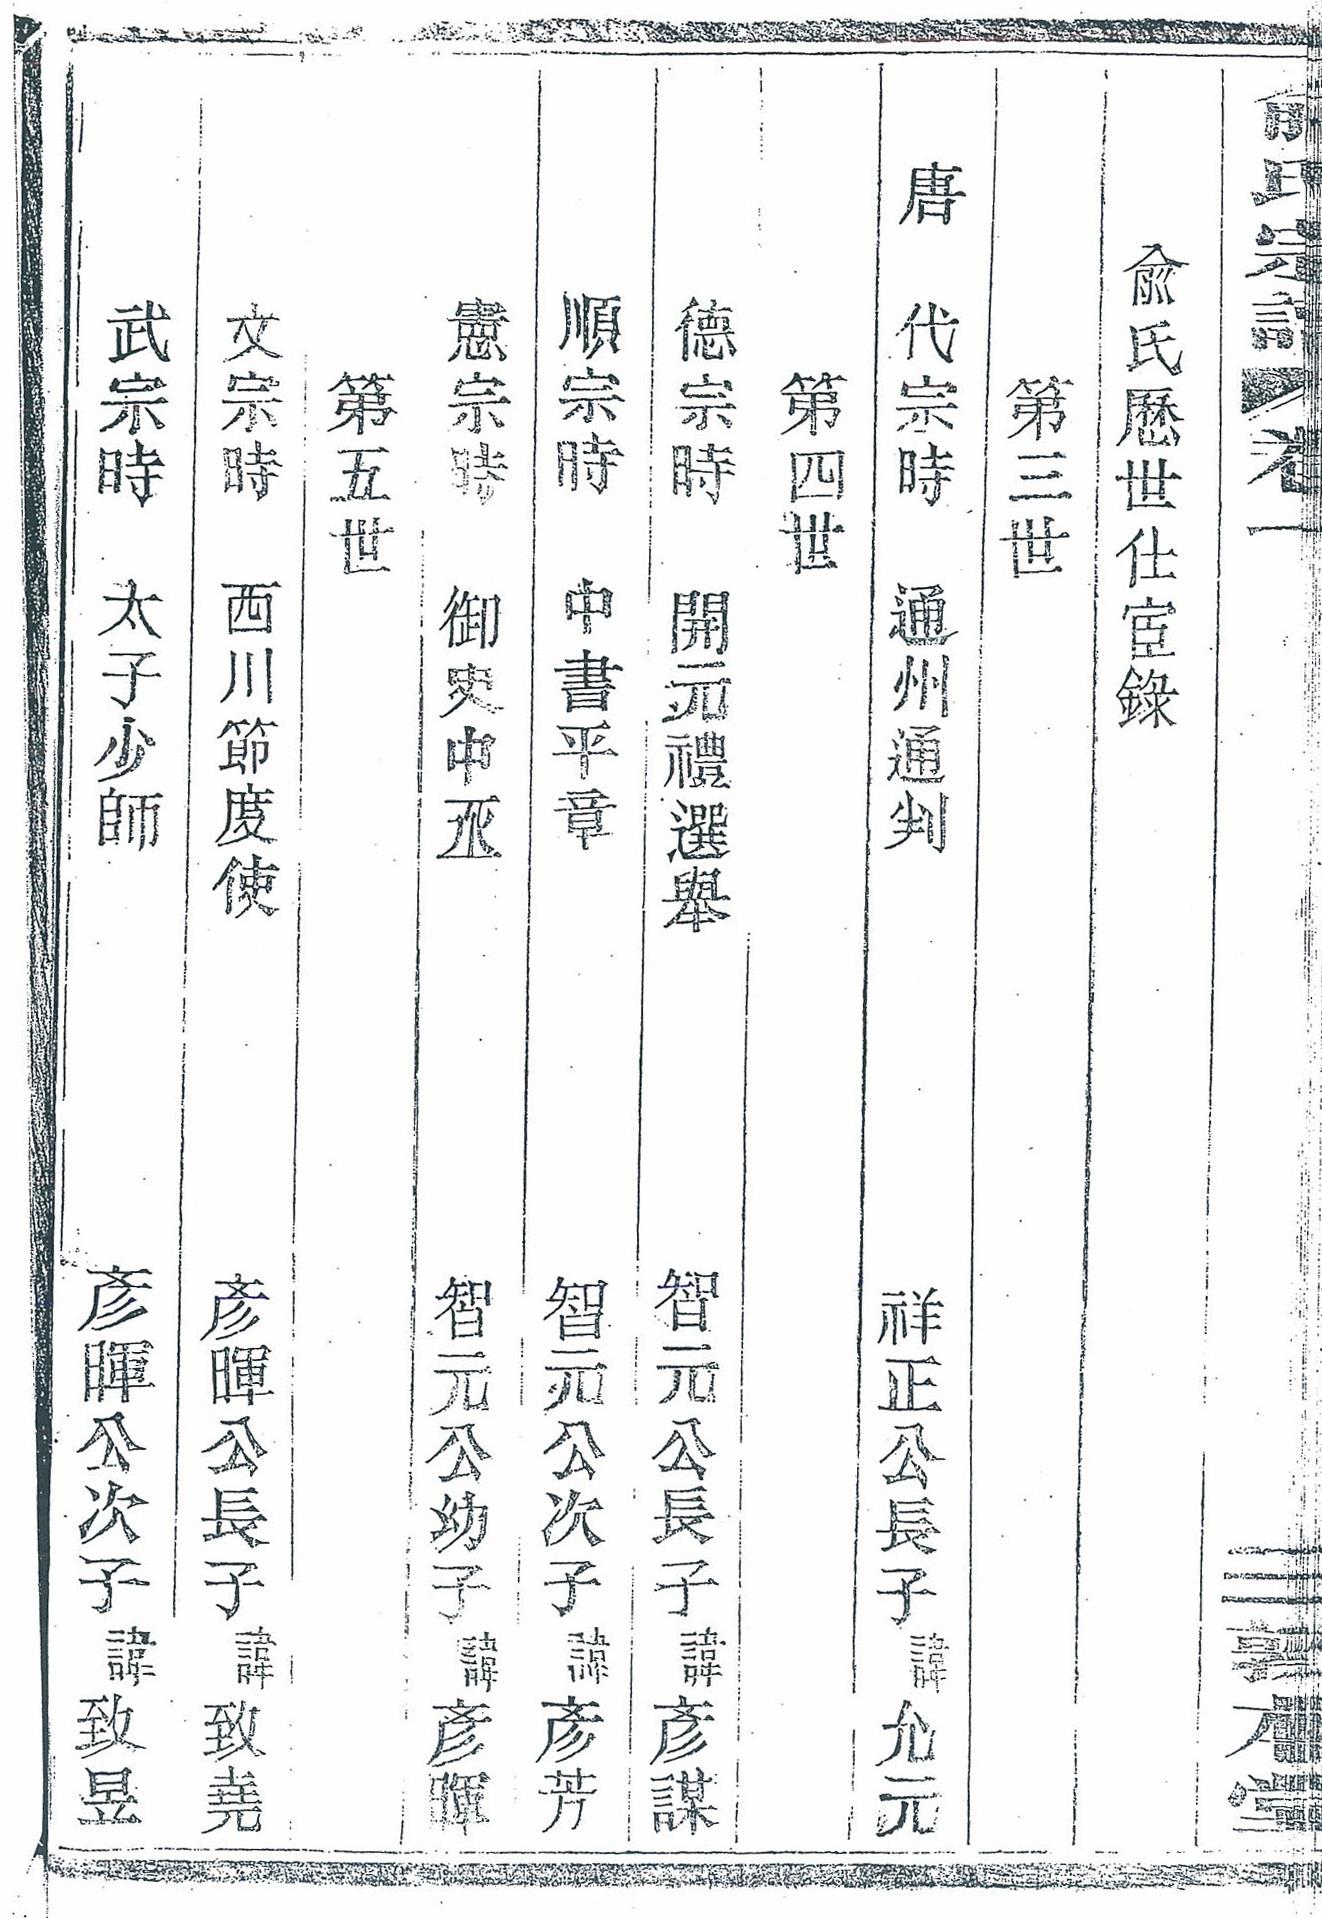 俞氏宗譜 卷一 三 本堂
俞氏歷世仕宦錄
第三世
唐 代宗時 通州通判 祥正公長子 諱 允元
第四世
德宗時 開元禮選舉 智元公長子 諱 彥謀
順宗時 中書平章 智元公次子 諱 彥芳
憲宗時 御史中丞 智元公幼子 諱 彥暉
第五世
文宗時 西川節度使 彥暉公長子 諱 致堯
武宗時 太子少師 彥暉公次子 諱 致昱